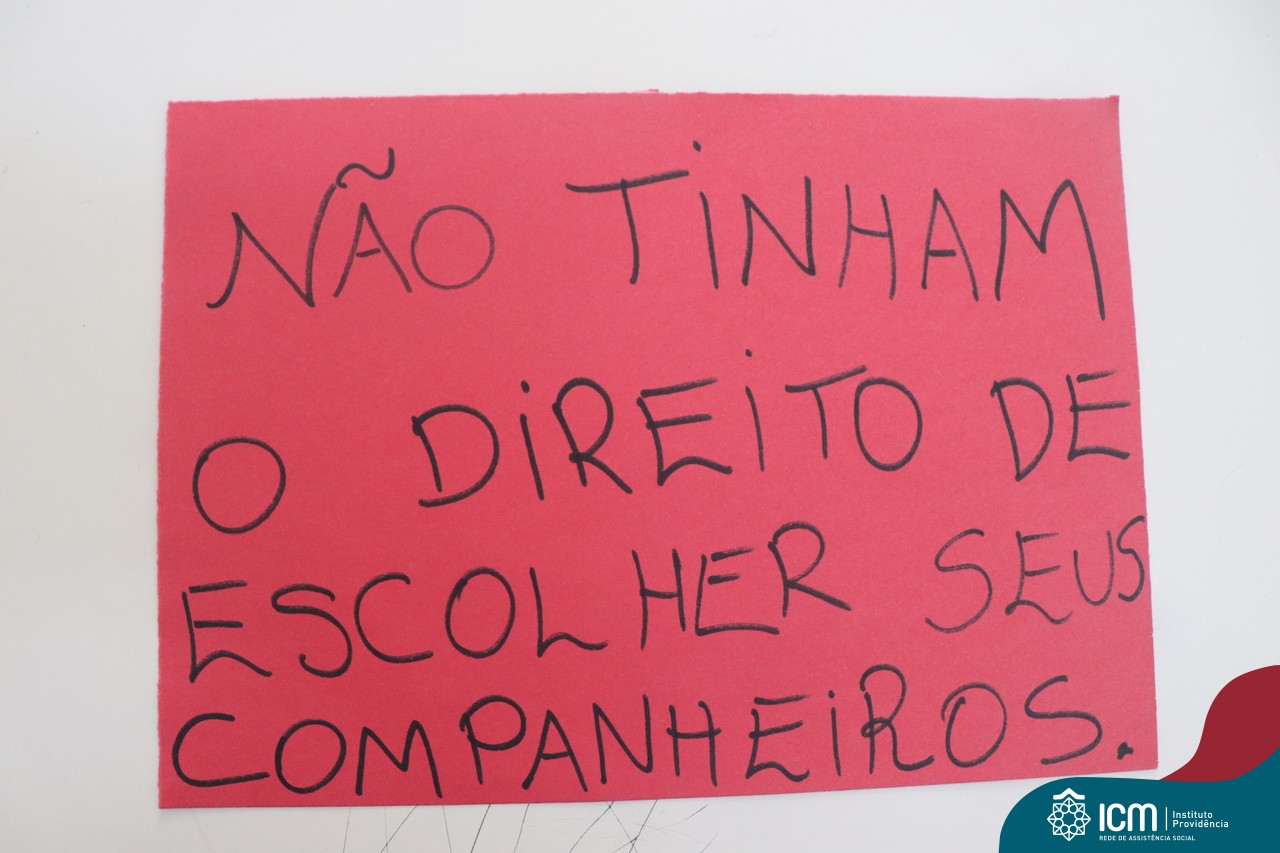 NÃO TINHAM
O DIREITO DE
ESCOLHER SEUS
COMPANHEIROS.
ICM Instituto Providência
REDE DE ASSISTÊNCIA SOCIAL